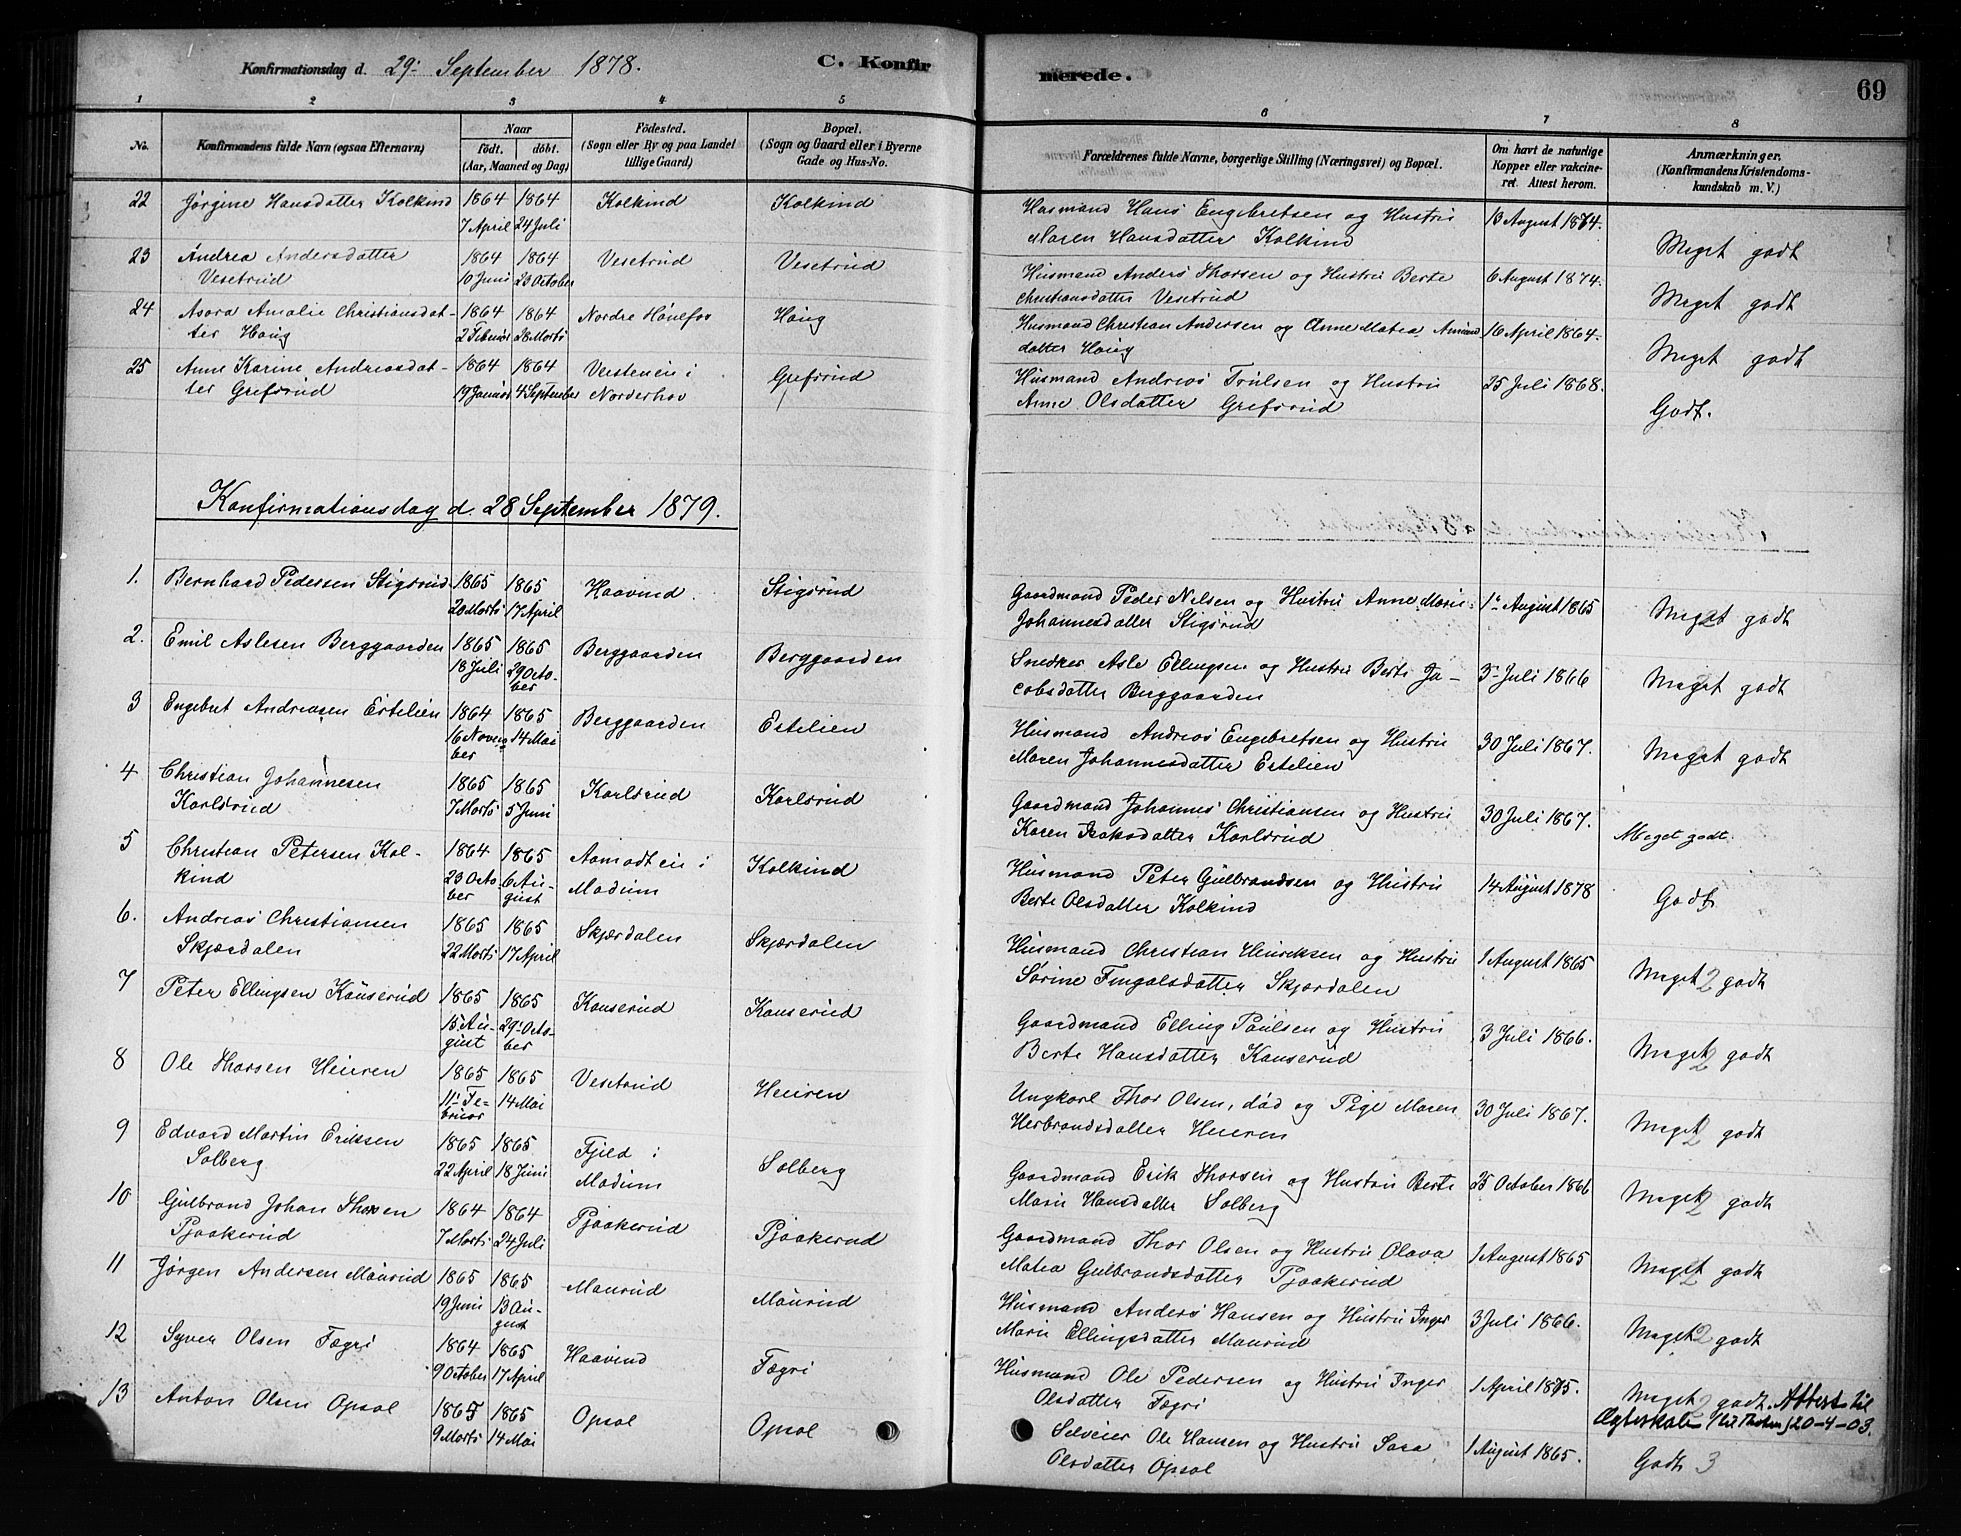 Konfirmationsdag d. 29. September 1878. C. Konfir
merede. 69
1 2 3 4 5
6 7 8
No. Konfirmandens fulde Navn (ogsaa Efternavn) Naar Födested. Bopæl.
født. döbt. (Sogn eller By og paa Landet (Sogn og Gaard eller i Byerne
(Aar, Maaned og Dag) tillige Gaard) Gade og Hus-No.
Forældrenes fulde Navne, borgerlige Stilling (Næringsvei) og Bopæl.
Om havt de naturlige
Kopper eller vakcine-
ret. Attest herom.
Anmærkninger.
(Konfirmandens Kristendoms-
kundskab m. V.)
22 Jørgine Hansdatter Kolkind 1864 1864 Kolkind Kolkind
7 April 24 Juli
Husmand Hans Engebretsen og Hustru 13 August 1874.
Maren Hansdatter Kolkind Meget godt
23 Andrea Andersdatter 1864 1864 Vesetrud Vesetrud
Vesetrud 10 Juni 23 October
Husmand Anders Thorsen og Hustru Berte 6 August 1874.
Christiansdatter Vesetrud Meget godt
24 Amalie Christiansdat- 1864 1864 Nordre Hønefos Haug
ter Haug 2 Februar 28 Marts
Husmand Christian Andersen og Anne Matea 16 April 1864.
datter Haug Meget godt
25 Anne Karine Andreasdat- 1864 1864 i Grefsrud
ter Grefsrud 19 Januar 4 September Norderhov
Husmand Andreas Trulsen og Hustru 25 Juli 1868.
Anne Olsdatter Grefsrud Godt.
Konfirmationsdag d. 28 September 1879.
1. Bernhard Pedersen Stigsrud 1865 1865 Haavind Stigsrud
20 Marts 17 April
Gaardmand Peder Nilsen og Hustru Anne Marie 1 August 1865
Johannesdatter Stigsrud Meget 2 godt
2. Emil Aslesen Berggaarden 1865 1865 Berggaarden Berggaarden
18 Juli 29 Octo-
ber
Snedker Asle Ellingsen og Hustru Berte Ja- 3 Juli 1866
cobsdatter Berggaarden Meget godt
3 Engebret Andreasen Estelien 1864 1865 Berggaarden Estelien
16 Novem 14 Mai
ber
Husmand Andreas Engebretsen og Hustru 30 Juli 1867.
Maren Johannesdatter Estelien Meget 2 godt
4 Christian Johannesen 1865 1865 Karlsrud Karlsrud
Karlsrud 7 Marts 5 Juni
Gaardmand Johannes Christiansen og Hustru 30 Juli 1867.
Karen Isaksdatter Karlsrud Meget godt.
5 Christian Petersen Kol- 1864 1865 Aamodt eie i Kolkind
kind 23 Octo- 6 Au- Modum
ber gust
Husmand Peter Gulbrandsen og Hustru 14 August 1878
Berte Olsdatter Kolkind Godt
6. Andreas Christiansen 1865 1865 Skjærdalen Skjærdalen
Skjærdalen 22 Marts 17 April
Husmand Christian Henriksen og Hustru 1 August 1865
Sørine Fingalsdatter Skjærdalen Meget 2 godt
7 Peter Ellingsen Kauserud 1865 1865 Kauserud Kauserud
15 Au- 29 Octo-
gust ber
Gaardmand Elling Paulsen og Hustru 3 Juli 1866.
Berte Hansdatter Kauserud Meget 2 godt
8 Ole Thorsen Heieren 1865 1865 Vesetrud Heieren
11 Fe- 14 Mai
bruar
Ungkarl Thor Olsen, død og Pige Maren 30 Juli 1867.
Herbrandsdatter Heieren Meget 2 godt
9 Edvard Martin Eriksen 1865 1865 Fjeld i Solberg
Solberg 22 April 18 Juni Modum
Gaardmand Erik Thorsen og Hustru Berte 25 October 1866
Marie Hansdatter Solberg Meget 2 godt
10 Gulbrand Johan Thorsen 1864 1864 Pjaakerud Pjaakerud
Pjaakerud 7 Marts 24 Juli
Gaardmand Thor Olsen og Hustru Olava 1 August 1865
Matea Gulbrandsdatter Pjaakerud Meget 2 godt
11 Jørgen Andersen Maurud 1865 1865 Maurud Maurud
19 Juni 13 Au-
gust
Husmand Anders Hansen og Hustru Inger 3 Juli 1866.
Marie Ellingsdatter Maurud Meget 2 godt
12 Syver Olsen Fægri 1864 1865 Haavind Fægri
9 October 17 April
Husmand Ole Pedersen og Hustru Inger 1 April 1875.
Olsdatter Fægri Meget 2 godt. Attest til
Ægteskab 20-4-03.
13 Anton Olsen Opsal 1865 1865 Opsal Opsal
9 Marts 14 Mai
Selveier Ole Hansen og Hustru Sara 1 August 1865.
Olsdatter Opsal Godt 3